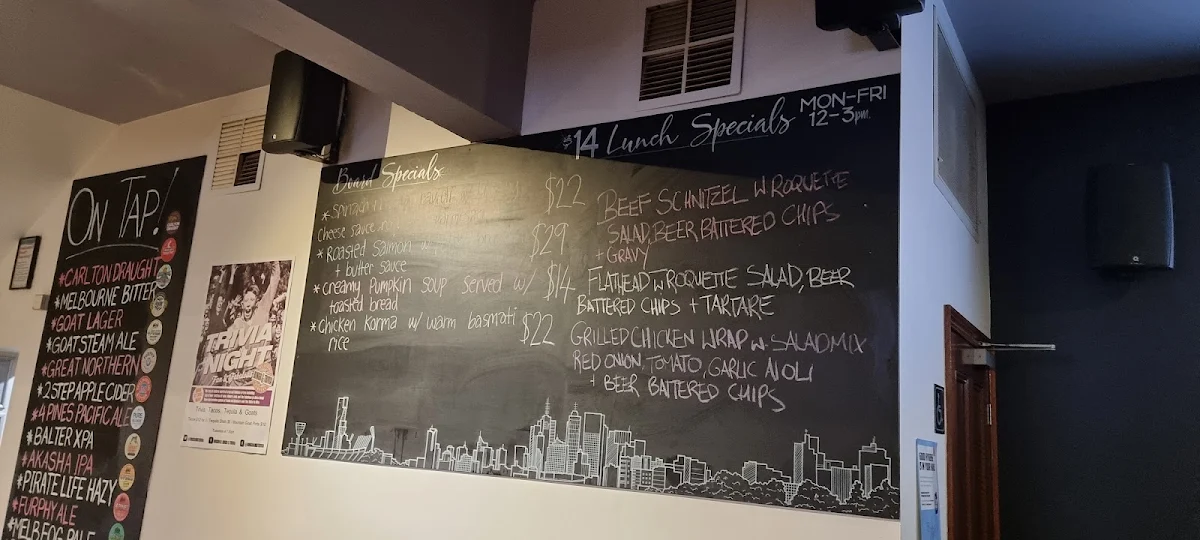 ON TAP!
*CARLTON DRAUGHT
*MELBOURNE BITTER
*GOAT LAGER
*GOAT STEAM ALE
*GREAT NORTHERN
*2 STEP APPLE CIDER
*4 PINES PACIFIC ALE
*BALTER XPA
*AKASHA IPA
*PIRATE LIFE HAZY
*FURPHY ALE
*MELB FOG PALE
TRIVIA
NIGHT
Trivia, Tacos, Tequila & Goats
Board Specials
$22
Cheese sauce
*Roasted Salmon $29
+ butter sauce
*creamy pumpkin soup served w/ $14
toasted bread
*Chicken Korma w/ warm basmati $22
rice
$14 Lunch Specials MON-FRI
12-3pm.
BEEF SCHNITZEL W ROQUETTE
SALAD, BEER BATTERED CHIPS
+ GRAVY
FLATHEAD W ROQUETTE SALAD, BEER
BATTERED CHIPS + TARTARE
GRILLED CHICKEN WRAP w. SALAD MIX
RED ONION, TOMATO, GARLIC AIOLI
+ BEER BATTERED CHIPS